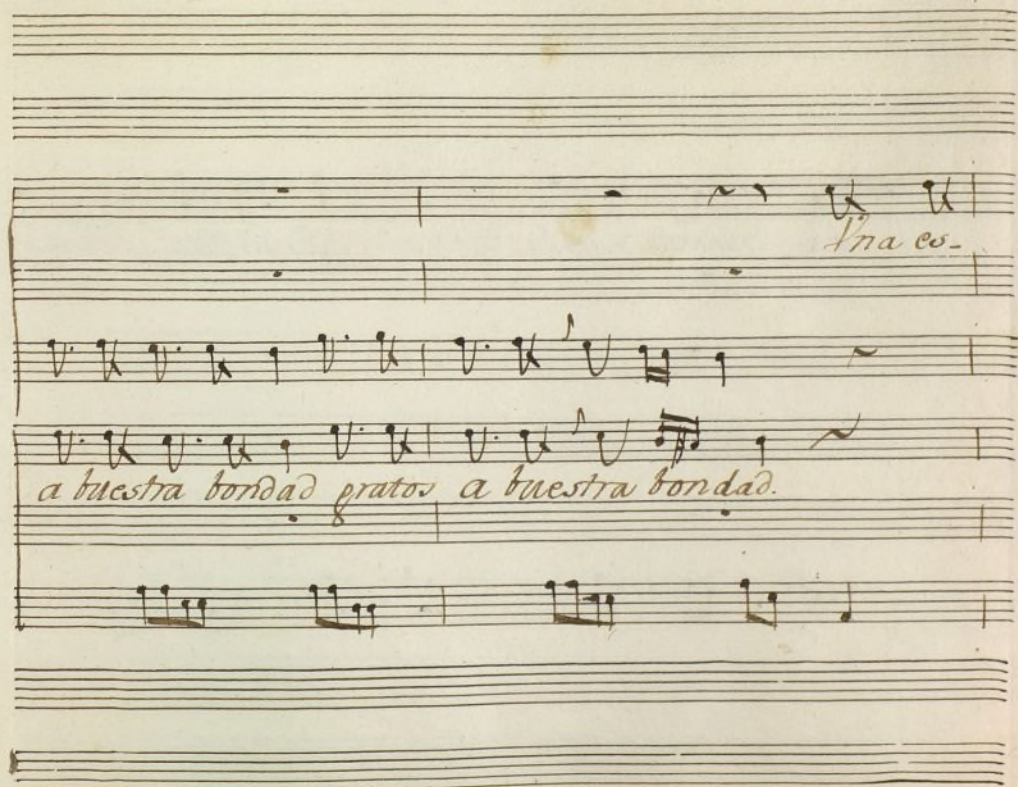 Vna es-
a buestra bondad gratos a buestra bondad.